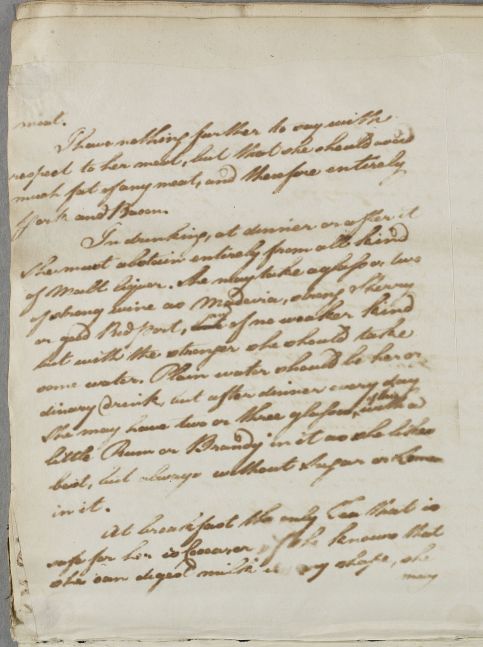 meat.
I have nothing further to say with
respect to her meat, but that she should avoid
much fat of any meat, and therefore entirely
Pork and Bacon.
In drinking, at dinner or after it
She must abstain entirely from all kind
of Malt liquor. She may take a glass or two
of strong wine as Madeira, strong Sherry
or good Red port, of no weaker kind
but with the stronger she should take
some water. Plain water should be her or
dinary drink, but after dinner every day
She may have two or three glasses, with a
little Rum or Brandy in it as she likes
best, but always without Sugar or
in it.
At breakfast the only Tea that is
safe for her is If she knows that
she can digest milk in any shape, she
may